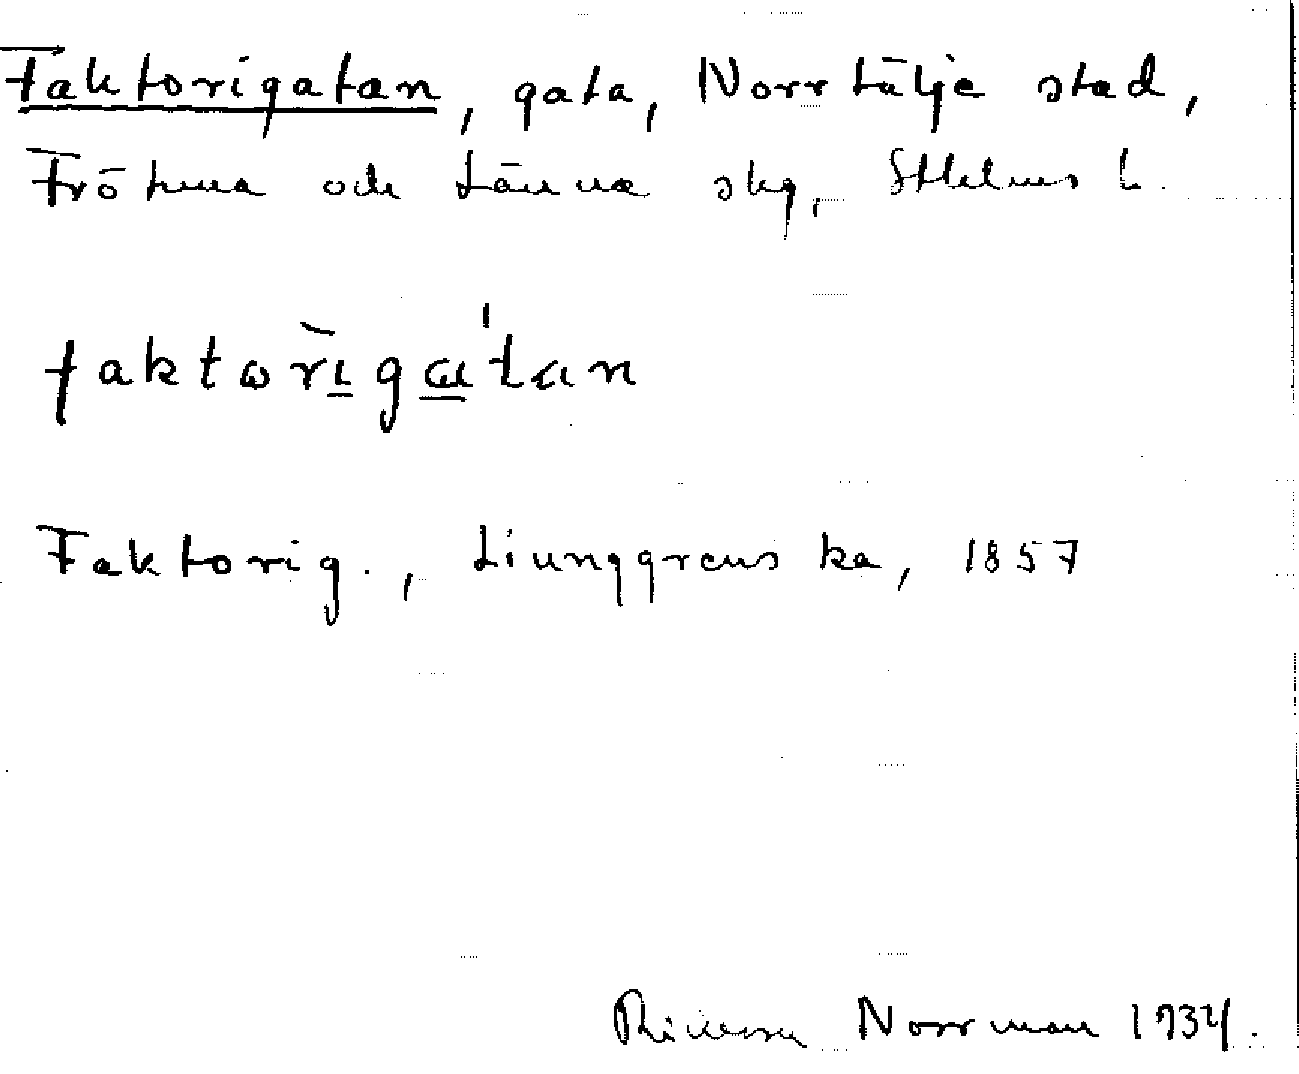 Faktorigatan, gata, Norrtälje stad,
Frötuna och Länna skg, Sthlms l.
faktorigatan
Faktorig., Liunggrens ka, 1857
Norrman 1934.